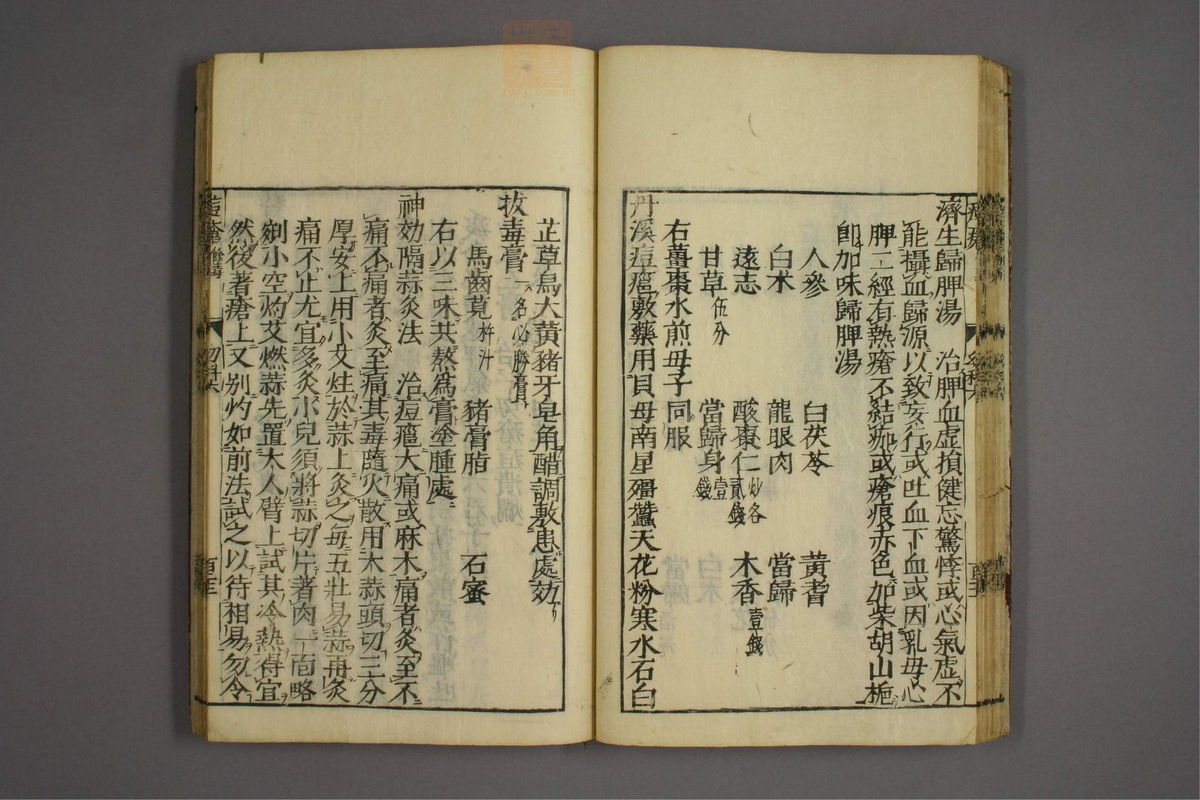 濟生歸脾湯　治脾血虛損健忘驚悸或心氣虛不
能攝血歸源以致妄行或吐血下血或因乳母心
脾二經有熱瘡不結痂或瘡痕赤色加柴胡山梔
卽加味歸脾湯
人參　白茯苓　黃耆
白朮　龍眼肉　當歸
遠志　酸棗仁炒各貳錢　木香壹錢
甘草伍分　當歸身壹錢
右薑棗水煎母子同服
丹溪痘癰敷藥用貝母南星殭蠶天花粉寒水石白
芷草烏大黃豬牙皂角醋調敷患處効
拔毒膏一名必勝膏
馬齒莧杵汁　豬膏脂　石蜜
右以三味共熬爲膏塗腫處
神効隔蒜灸法　治痘癰大痛或麻木痛者灸至不
痛不痛者灸至痛其毒隨火散用大蒜頭切三分
厚安上用小艾炷於蒜上灸之每五壯易蒜再灸
痛不止尤宜多灸小兒須將蒜切片著肉一面略
剜小空灼艾燃蒜先置大人臂上試其冷熱得宜
然後著瘡上又別灼如前法試之以待相易勿令